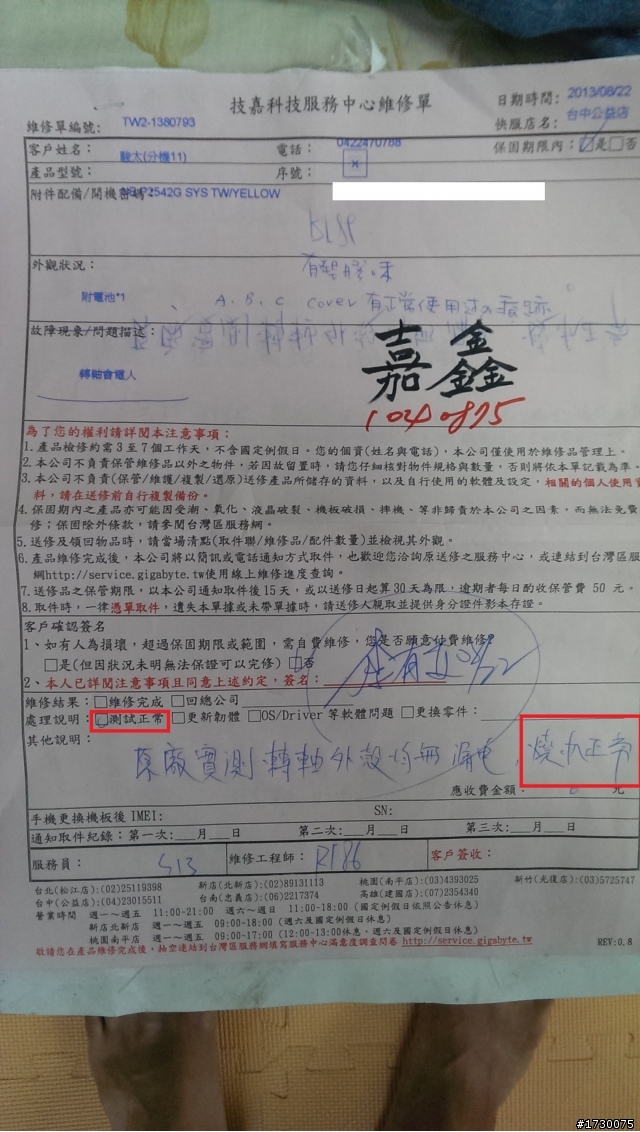 技嘉科技服務中心維修單
日期時間: 2013/08/22
維修單編號: TW2-1380793
快服店名: 台中公益店
客戶姓名: 駿太(分機11) 電話: 0422470788 保固期限內: ☑是☐否
產品型號: P2542G SYS TW/YELLOW 序號: ×
附件配備/開機密碼:
外觀狀況:
附電池*1 A.B.C cover 有正常使用過の痕跡
故障現象/問題描述: 嘉鑫
轉軸會電人
1020895
為了您的權利請詳閱本注意事項:
1.產品檢修約需3至7個工作天,不含國定例假日。您的個資(姓名與電話),本公司僅使用於維修品管理上。
2.本公司不負責保管維修品以外之物件,若因故留置時,請您仔細核對物件規格與數量,否則將依本單記載為準。
3.本公司不負責(保管/維護/複製/還原)送修產品所儲存的資料,以及自行使用的軟體及設定,相關的個人使用資
料,請在送修前自行複製備份。
4.保固期內之產品亦可能因受潮、氧化、液晶破裂、機板破損、摔機、等非歸責於本公司之因素,而無法免費
修;保固除外條款,請參閱台灣區服務網。
5.送修及領回物品時,請當場清點(取件聯/維修品/配件數量)並檢視其外觀。
6.產品維修完成後,本公司將以簡訊或電話通知方式取件,也歡迎您洽詢原送修之服務中心,或連結到台灣區服
網http://service.gigabyte.tw使用線上維修進度查詢。
7.送修品之保管期限,以本公司通知取件後15天,或以送修日起算30天為限,逾期者每日酌收保管費 50 元。
8.取件時,一律憑單取件,遺失本單據或未帶單據時,請送修人親取並提供身分證件影本存證。
客戶確認簽名
1、如有人為損壞,超過保固期限或範圍,需自費維修,您是否願意付費維修?
☐是(但因狀況未明無法保證可以完修) ☐否
2、本人已詳閱注意事項且同意上述約定,簽名:
維修結果: ☐維修完成 ☐回總公司
處理說明: ☑測試正常 ☐更新韌體 ☐OS/Driver等軟體問題 ☐更換零件:
其他說明: 原廠實測轉軸外殼均無漏電,燒機正常
應收費金額: 元
手機更換機板後 IMEI: SN:
通知取件紀錄: 第一次:__月__日 第二次:__月__日 第三次:__月__日
服務員: S13 維修工程師: R186 客戶簽收:
台北(松江店):(02)25119398 新店(北新店):(02)89131113 桃園(南平店):(03)4393025 新竹(光復店):(03)5725747
台中(公益店):(04)23015511 台南(忠義店):(06)2217374 高雄(建國店):(07)2354340
營業時間 週一～週五 11:00-21:00 週六～週日 11:00-18:00 (國定例假日依照公告休息)
新店北新店 週一～週五 09:00-18:00 (週六及國定例假日休息)
桃園南平店 週一～週五 09:00-17:00 (12:00-13:00休息,週六及國定例假日休息)
敬請您在產品維修完成後,抽空連結到台灣區服務網填寫服務中心滿意度調查問卷 http://service.gigabyte.tw
REV:0.8
#1730075